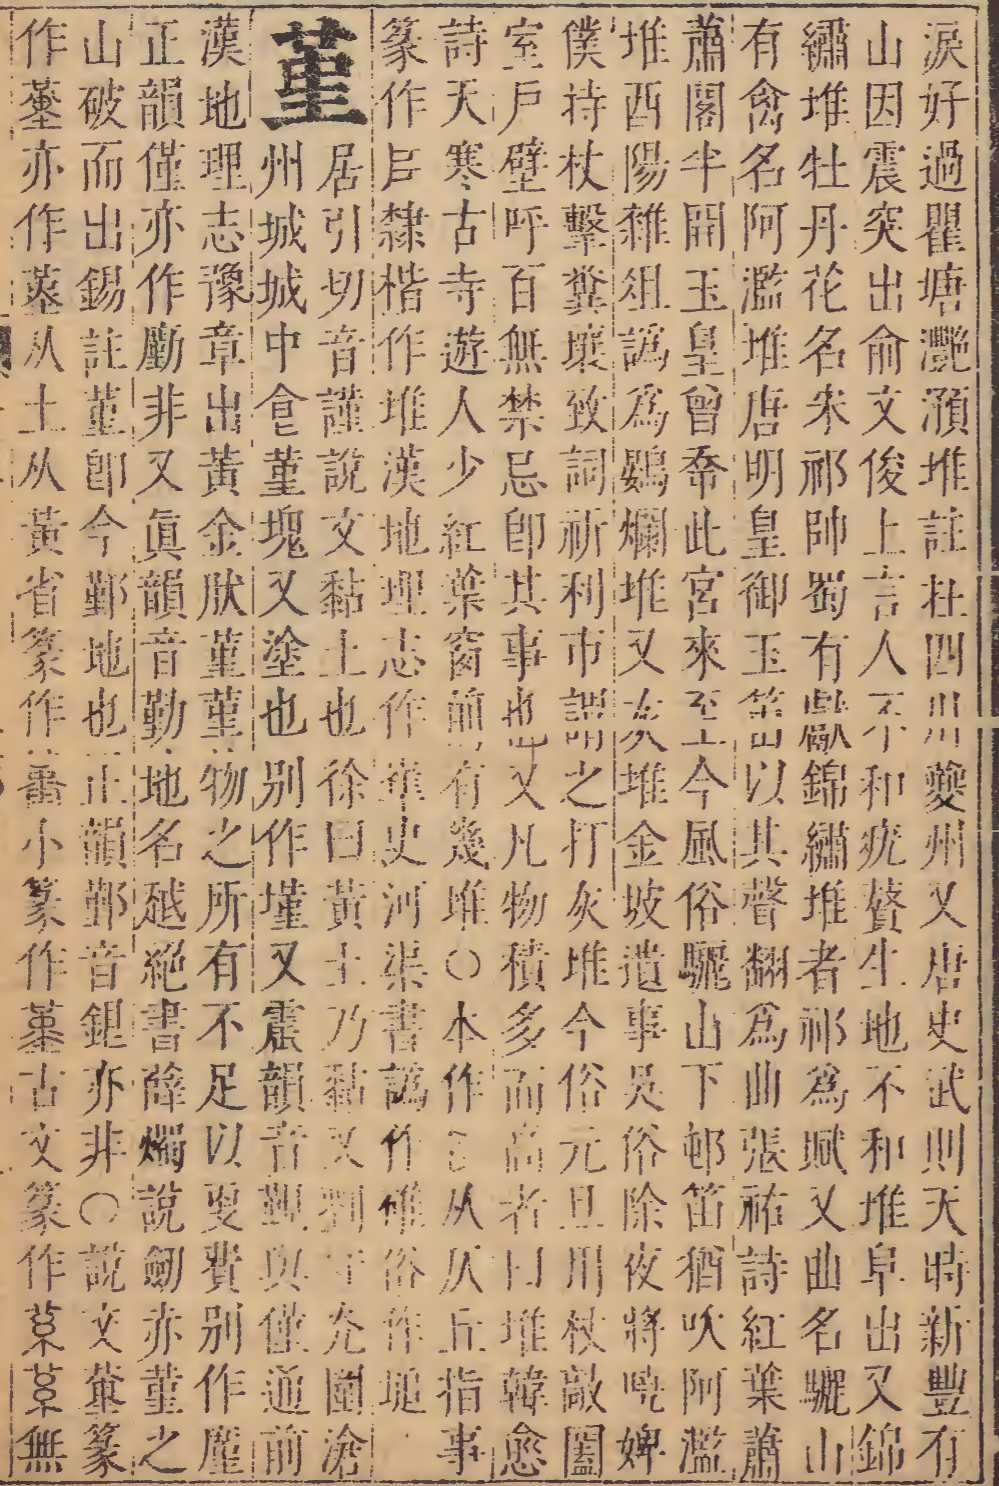 淚好過瞿塘灩澦堆註杜四川夔州又唐史武則天時新豐有
山因震突出俞文俊上言人不和疣贅生地不和堆阜出又錦
繡堆牡丹花名宋祁帥蜀有獻錦繡堆者祁爲賦又曲名驪山
有禽名阿濫堆唐明皇御玉笛以其聲翻爲曲張祐詩紅葉蕭
蕭閣半開玉皇曾奏此宮來至今風俗驪山下邨笛猶吹阿濫
堆酉陽雜俎譌爲鷃爛堆又灰堆金坡遺事吳俗除夜將曉婢
僕持杖擊糞壤致詞祈利市謂之打灰堆今俗元旦用杖敲闔
室戶壁呼百無禁忌卽其事也又凡物積多而高者曰堆韓愈
詩天寒古寺遊人少紅葉窗前有幾堆○本作𠂤从仄丘指事
篆作𠂤隸楷作堆漢地理志作崔史河渠書譌作碓俗作塠
堇居引切音謹說文黏土也徐曰黃土乃黏又劉守充圍滄
州城城中食堇塊又塗也別作墐又震韻音覲與僅通前
漢地理志豫章出黃金肰堇堇物之所有不足以更費別作廑
正韻僅亦作勱非又眞韻音勤地名越絕書薛燭說劒亦堇之
山破而出錫註堇卽今鄞地也正韻鄞音銀亦非○說文堇篆
作墓亦作蓳从土从黃省篆作𦰩小篆作墓古文篆作𦰶𦰶無